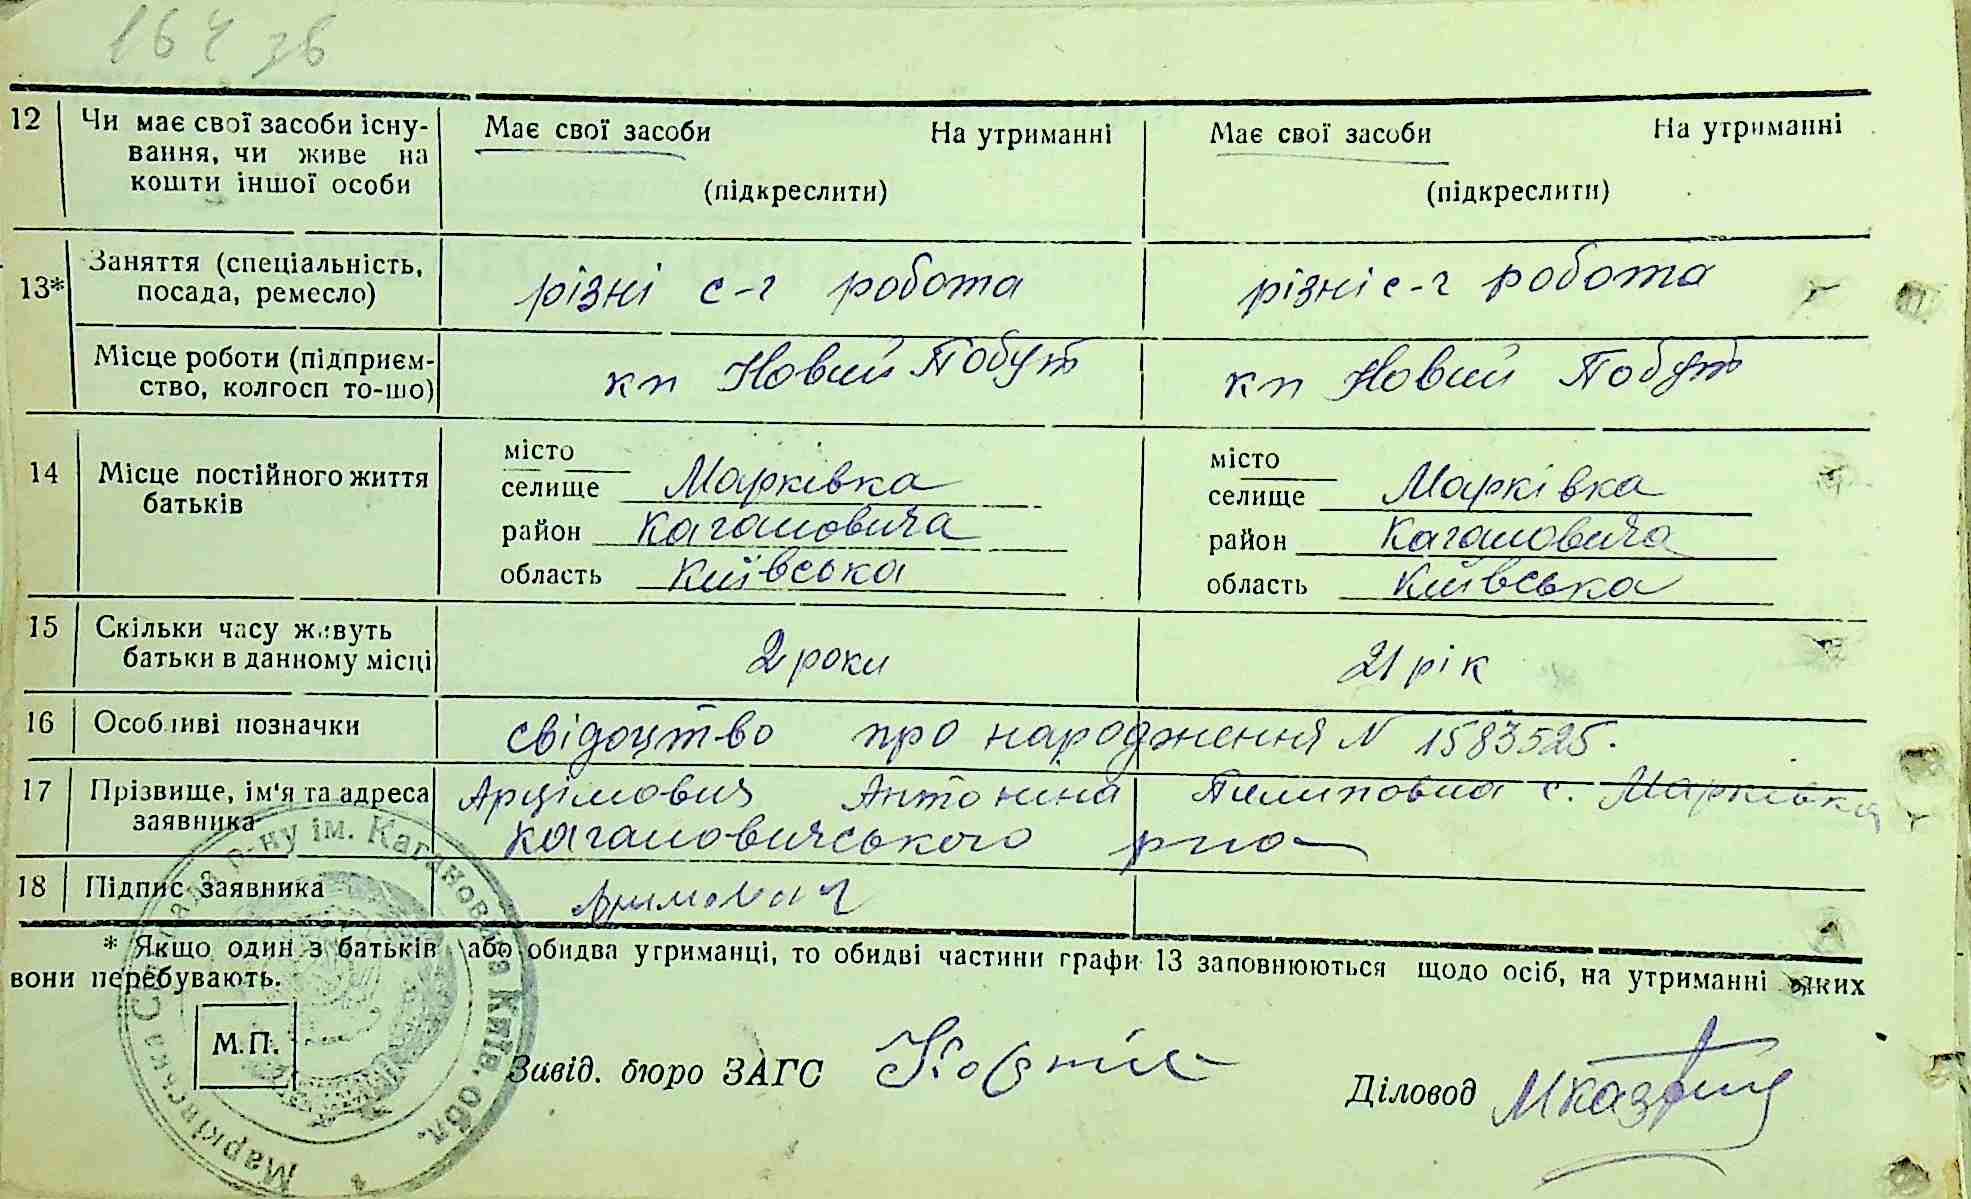 164 зв
12 Чи має свої засоби існу- Має свої засоби На утриманні Має свої засоби На утриманні
вання, чи живе на
кошти іншої особи (підкреслити) (підкреслити)
13* Заняття (спеціальність, різні с-г робота різні с-г робота
посада, ремесло)
Місце роботи (підприєм- кп Новий Побут кп Новий Побут
ство, колгосп то-що)
14 Місце постійного життя місто місто
батьків селище Марківка селище Марківка
район Кагановича район Кагановича
область Київська область Київська
15 Скільки часу живуть 2 роки 21 рік
батьки в данному місці
16 Особливі позначки свідоцтво про народження N 1583525.
17 Прізвище, ім'я та адреса Арцімович Антоніна Пилиповна с. Марківка
заявника Кагановичського р-на
18 Підпис заявника
* Якщо один з батьків або обидва утриманці, то обидві частини графи 13 заповнюються щодо осіб, на утриманні яких
вони перебувають.
М.П.
Завід. бюро ЗАГС
Діловод
Марківська Сільрада р-ну ім. Кагановича Київ. обл.